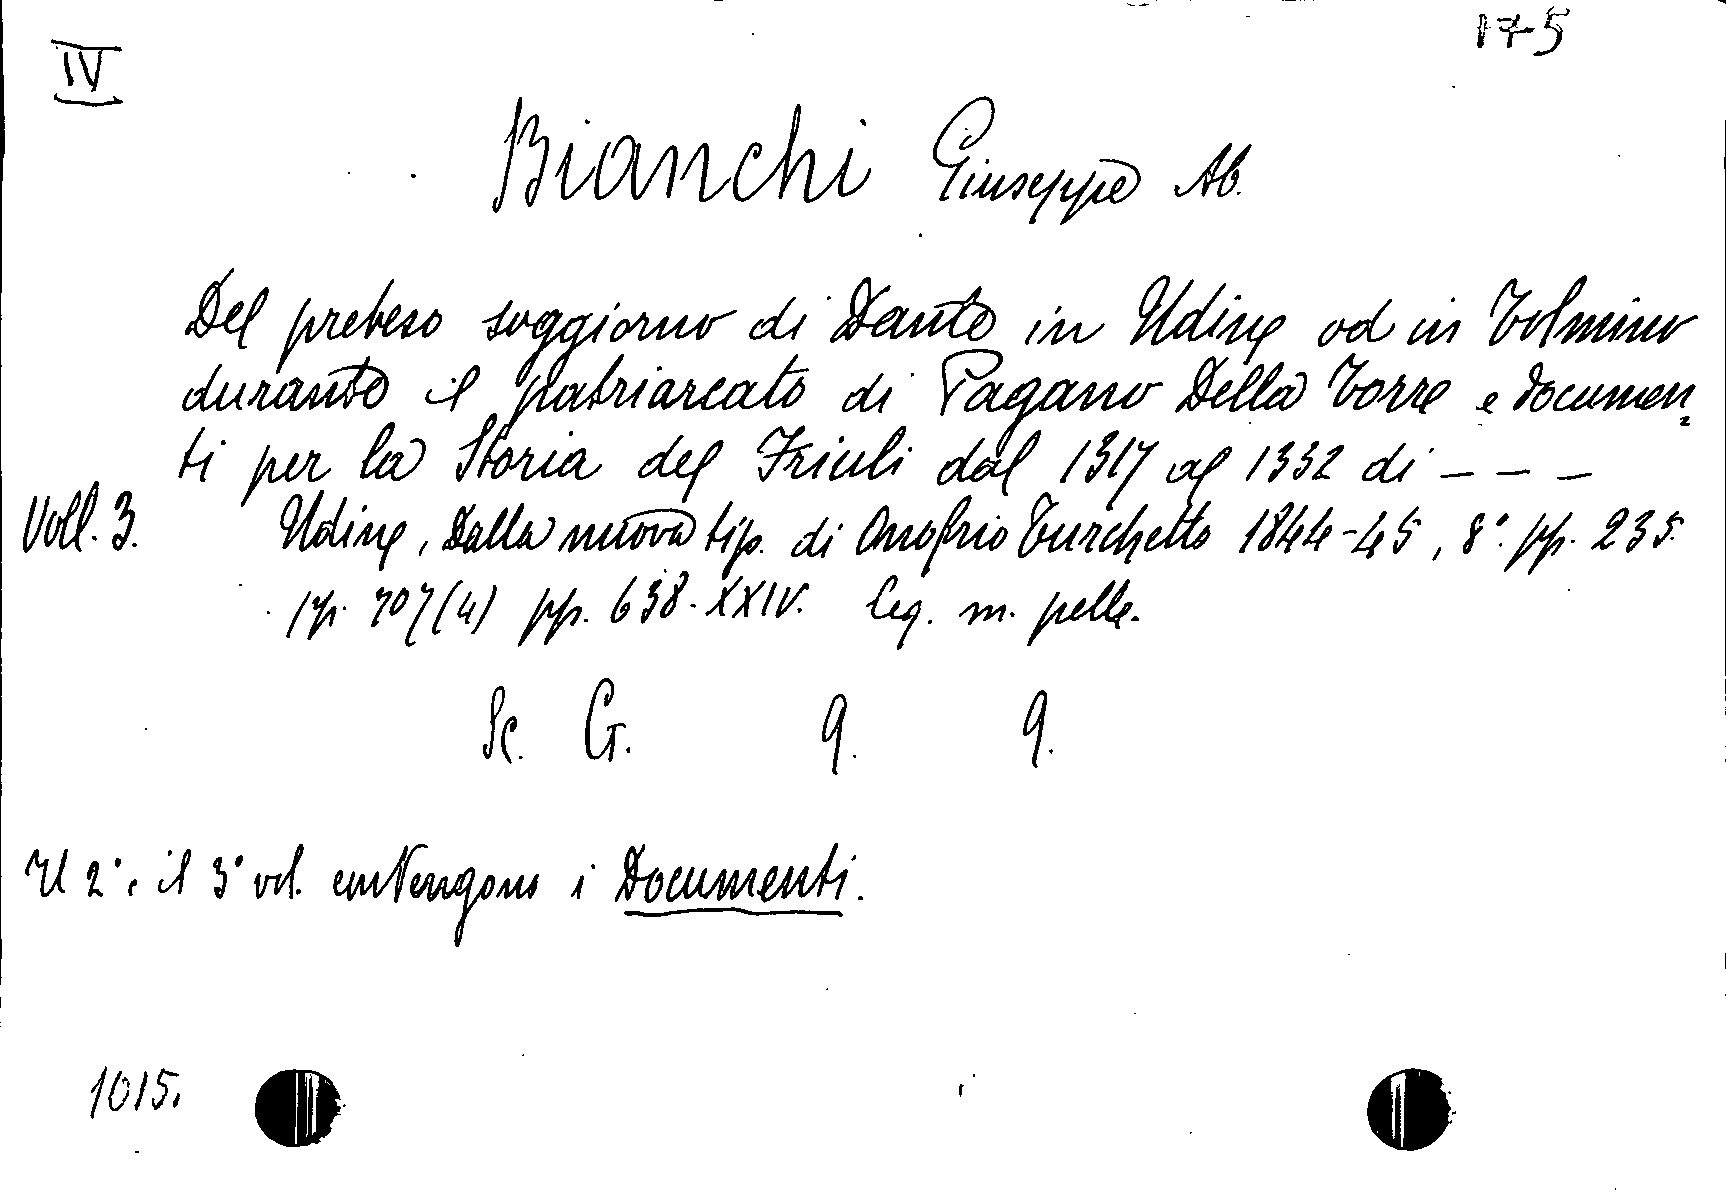 IV
175
Bianchi Giuseppe Ab.
Del preteso soggiorno di Dante in Udine od in Tolmino
durante il patriarcato di Pagano Della Torre e documen=
ti per la Storia del Friuli dal 1317 al 1332 di - - -
Voll. 3. Udine, Dalla nuova tip. di Onofrio Turchetto 1844-45, 8° pp. 235.
pp. 707 (4) pp. 638-XXIV. Leg. m. pelle.
Sc. G. 9. 9.
Il 2° e il 3° vol. contengono i Documenti.
1015.